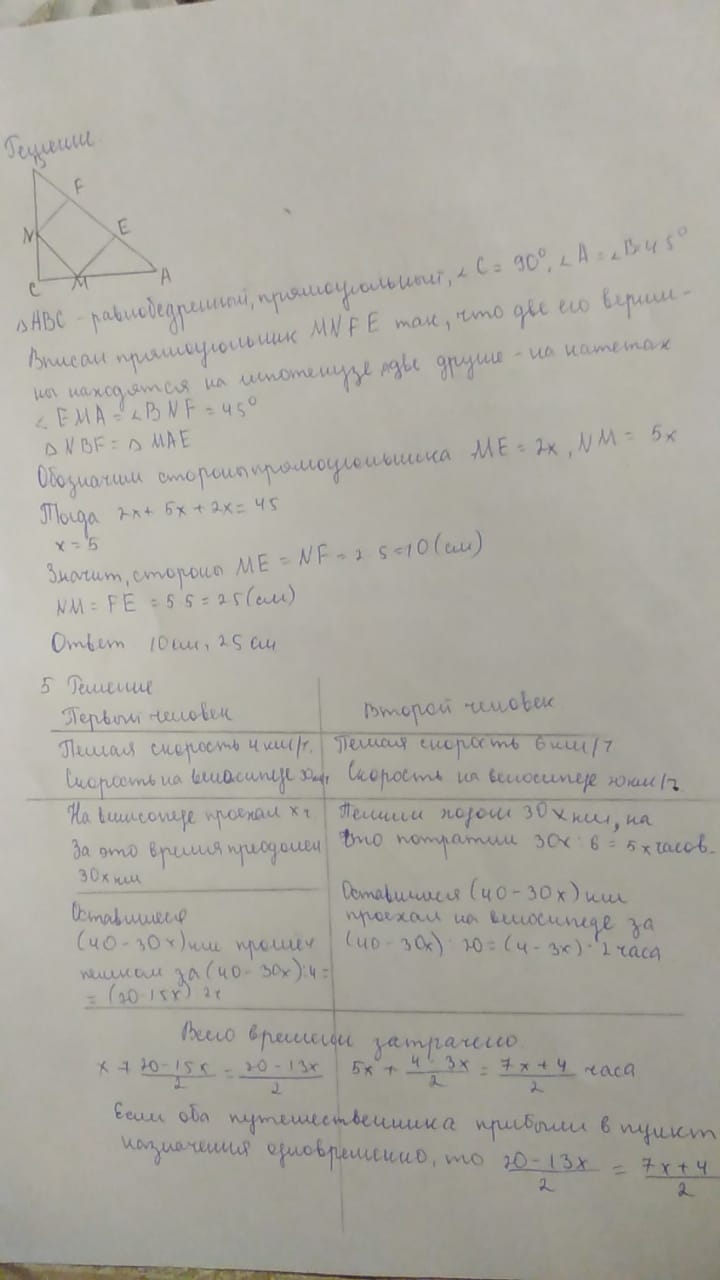 Решение
F
N
E
C
M
A
△ABC - равнобедренный, прямоугольный, ∠C = 90°, ∠A = ∠B = 45°
Вписан прямоугольник MNFE так, что две его верши-
ны находятся на гипотенузе, а две другие - на катетах
∠EMA = ∠BNF = 45°
△NBF = △MAE
Обозначим стороны прямоугольника ME = 2x, NM = 5x
Тогда 2x + 5x + 2x = 45
x = 5
Значит, стороны ME = NF = 2 5 = 10 (см)
NM = FE = 5 5 = 25 (см)
Ответ 10 см, 25 см
5 Решение
Первый человек
Второй человек
Пешая скорость 4 км/ч.
Пешая скорость 6 км/ч
Скорость на велосипеде 30км/ч
Скорость на велосипеде 20 км/ч
На велосипеде проехал x ч
Пешим ходом 30x км, на
За это время преодолел
что потратил 30x : 6 = 5x часов.
30x км
Оставшиеся
Оставшиеся (40 - 30x) км
(40 - 30x) км прошел
проехал на велосипеде за
пешком за (40 - 30x) : 4 =
(40 - 30x) : 20 = (4 - 3x) : 2 часа
= (20 - 15x) : 2ч
Всего времени затрачено
x + 20 - 15x / 2 = 20 - 13x / 2
5x + 4 - 3x / 2 = 7x + 4 / 2 часа
Если оба путешественника прибыли в пункт
назначения одновременно, то 20 - 13x / 2 = 7x + 4 / 2